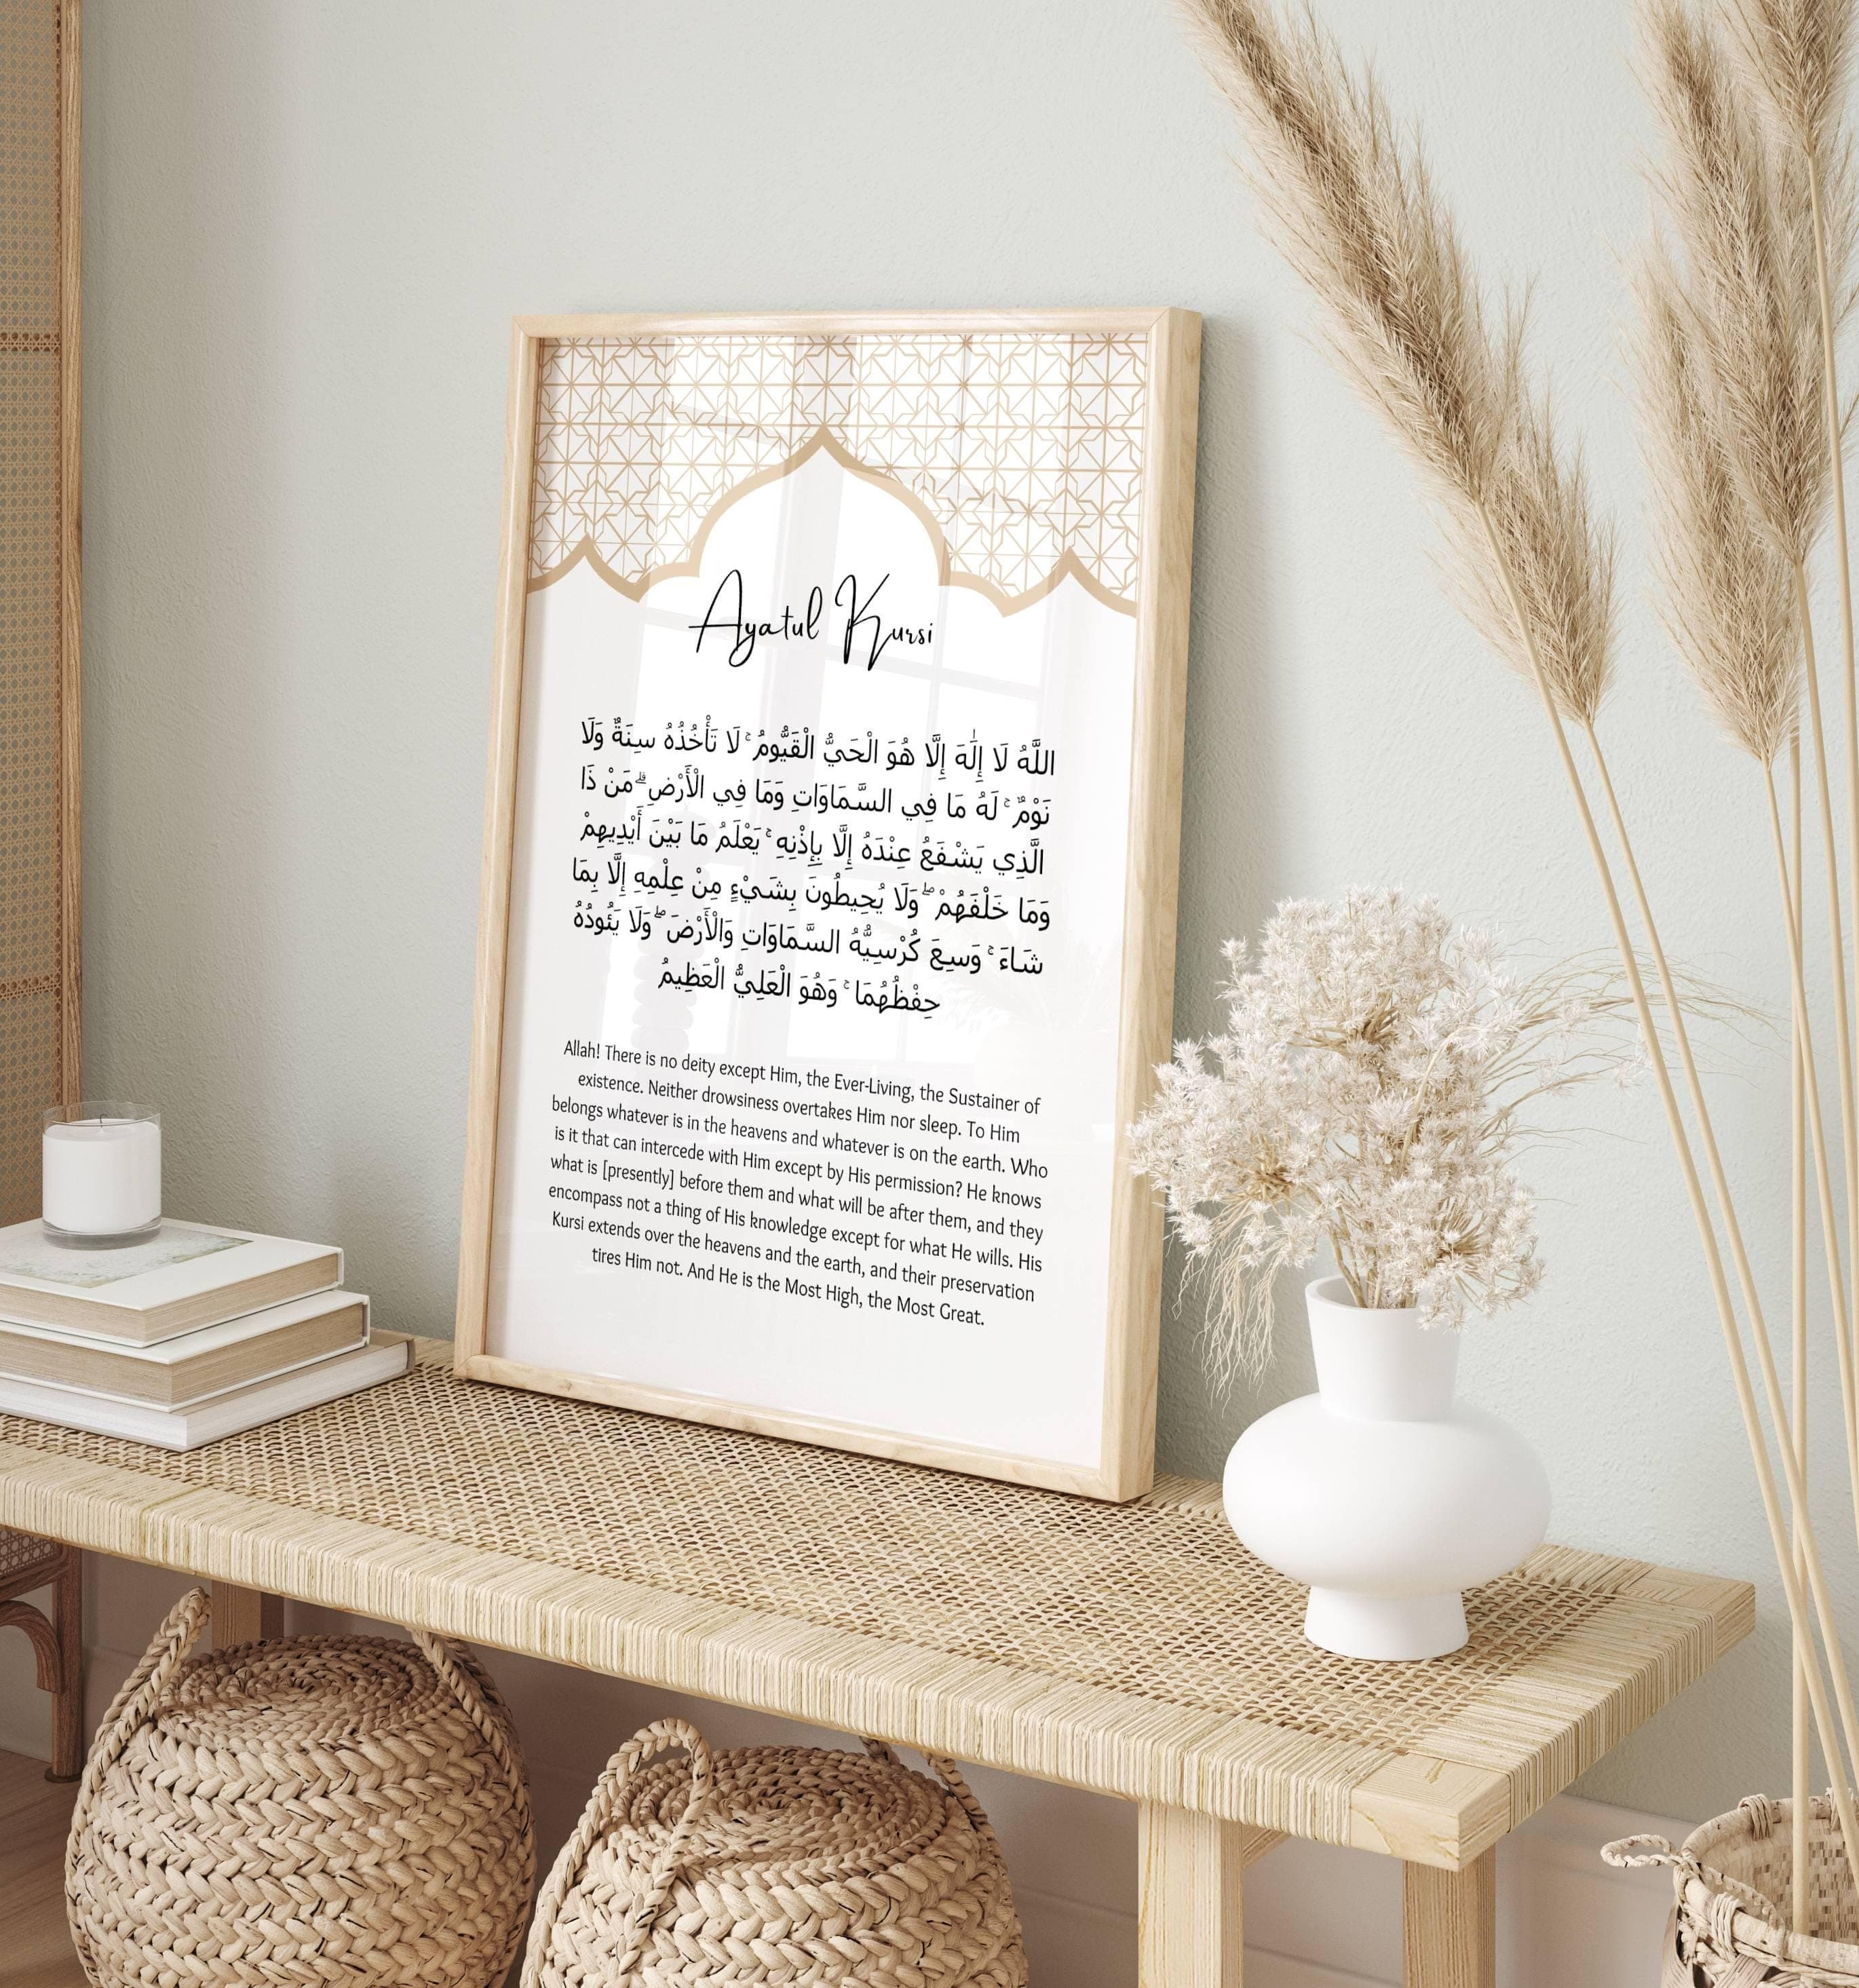 Ayatul Kursi
اللَّهُ لَا إِلَٰهَ إِلَّا هُوَ الْحَيُّ الْقَيُّومُ ۚ لَا تَأْخُذُهُ سِنَةٌ وَلَا
نَوْمٌ ۚ لَهُ مَا فِي السَّمَاوَاتِ وَمَا فِي الْأَرْضِ ۗ مَنْ ذَا
الَّذِي يَشْفَعُ عِنْدَهُ إِلَّا بِإِذْنِهِ ۚ يَعْلَمُ مَا بَيْنَ أَيْدِيهِمْ
وَمَا خَلْفَهُمْ ۖ وَلَا يُحِيطُونَ بِشَيْءٍ مِنْ عِلْمِهِ إِلَّا بِمَا
شَاءَ ۚ وَسِعَ كُرْسِيُّهُ السَّمَاوَاتِ وَالْأَرْضَ ۖ وَلَا يَئُودُهُ
حِفْظُهُمَا ۚ وَهُوَ الْعَلِيُّ الْعَظِيمُ
Allah! There is no deity except Him, the Ever-Living, the Sustainer of
existence. Neither drowsiness overtakes Him nor sleep. To Him
belongs whatever is in the heavens and whatever is on the earth. Who
is it that can intercede with Him except by His permission? He knows
what is [presently] before them and what will be after them, and they
encompass not a thing of His knowledge except for what He wills. His
Kursi extends over the heavens and the earth, and their preservation
tires Him not. And He is the Most High, the Most Great.